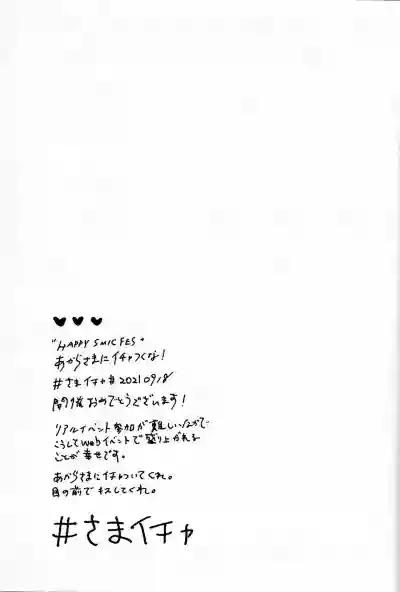 ♥♥♥
"HAPPY SMIC FES"
あからさまにイチャつくな!
#さまイチャ#20210918
開催おめでとうございます!
リアルイベント参加が難しいなかで
こうしてwebイベントで盛り上がれる
ことが幸せです。
あからさまにイチャついてくれ。
目の前でキスしてくれ。
#さまイチャ